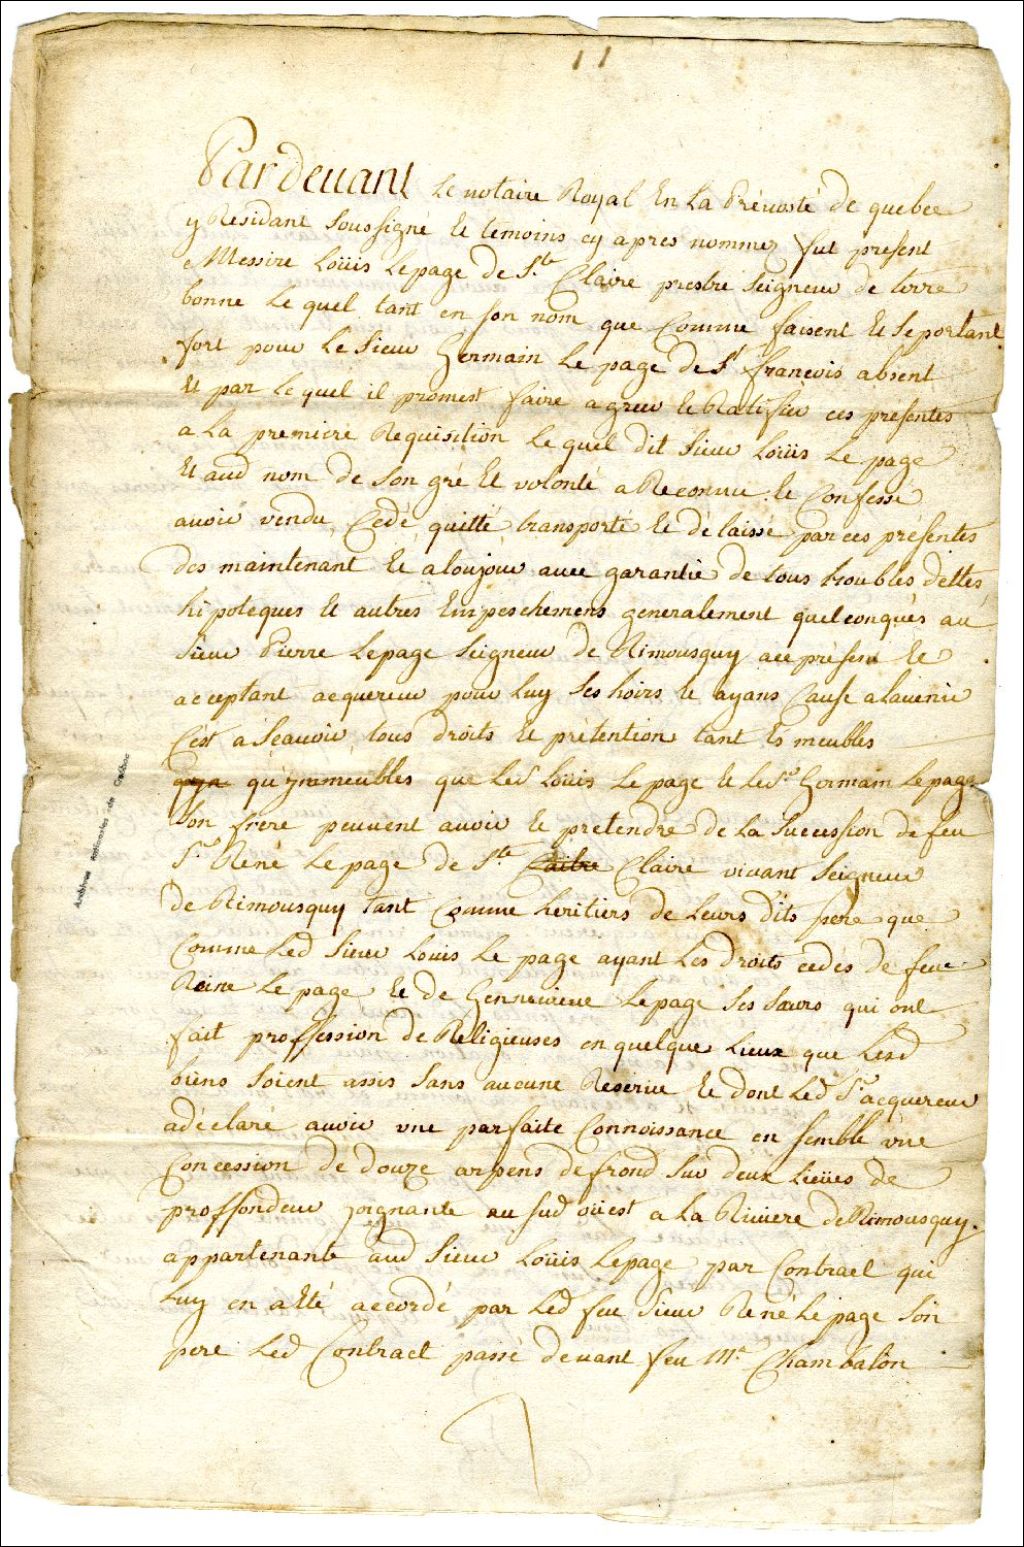 11
Pardeuant le notaire Royal En La Prévosté de quebec
y Residant soussigné et temoins cy apres nommez fut present
Messire Loüis Lepage de Ste Claire prestre Seigneur de terre
bonne Le quel tant en son nom que Comme faisent et Se portant
fort pour Le Sieur Germain Le page de St francois absent
et par lequel il promest faire agreer et Ratifier ces présentes
a La premiere Requisition Le quel dit Sieur Loüis Le page
et aud nom de Son gré et volonté a Reconnu et Confessé
auoir vendu, Cedé, quitté, transporté et délaissé par ces presentes
des maintenant et atoujour auec garantie de tous troubles dettes,
hipoteques et autres Empeschemens generalement quelconques au
Sieur Pierre Lepage Seigneur de Rimousquy ace présent et
acceptant acquereur pour Luy Ses hoirs et ayans Cause alauenir
C'est a Scauoir, tous droits et prétention tant Es meubles
qu'ymmeubles que Led Loüis Le page et led Sr Germain Lepage
Son frere peuuent auoir et pretendre de La Succession de feu
Sr René Le page de Ste Claire viuant Seigneur
de Rimousquy tant Comme heritiers de Leurs dits pere que
Comme Led Sieur Louis Le page ayant Les droits cedés de feue
Reine Le page et de Genneuieue Lepage Ses Sœurs qui ont
fait proffession de Religieuses en quelque Lieux que Lesd
biens Soient assis Sans aucune Reserue et dont Led Sr acquereur
adéclaré auoir vne parfaite Connoissance en semble vne
Concession de douze arpens de frond Sur deux Lieües de
proffondeur joignante au Sud oüest a La Riuiere de Rimousquy.
appartenante aud Sieur Loüis Lepage par Contract qui
Luy en a été accordé par Led feu Sieur René Le page Son
pere Led Contract passé deuant feu Me Chambalon